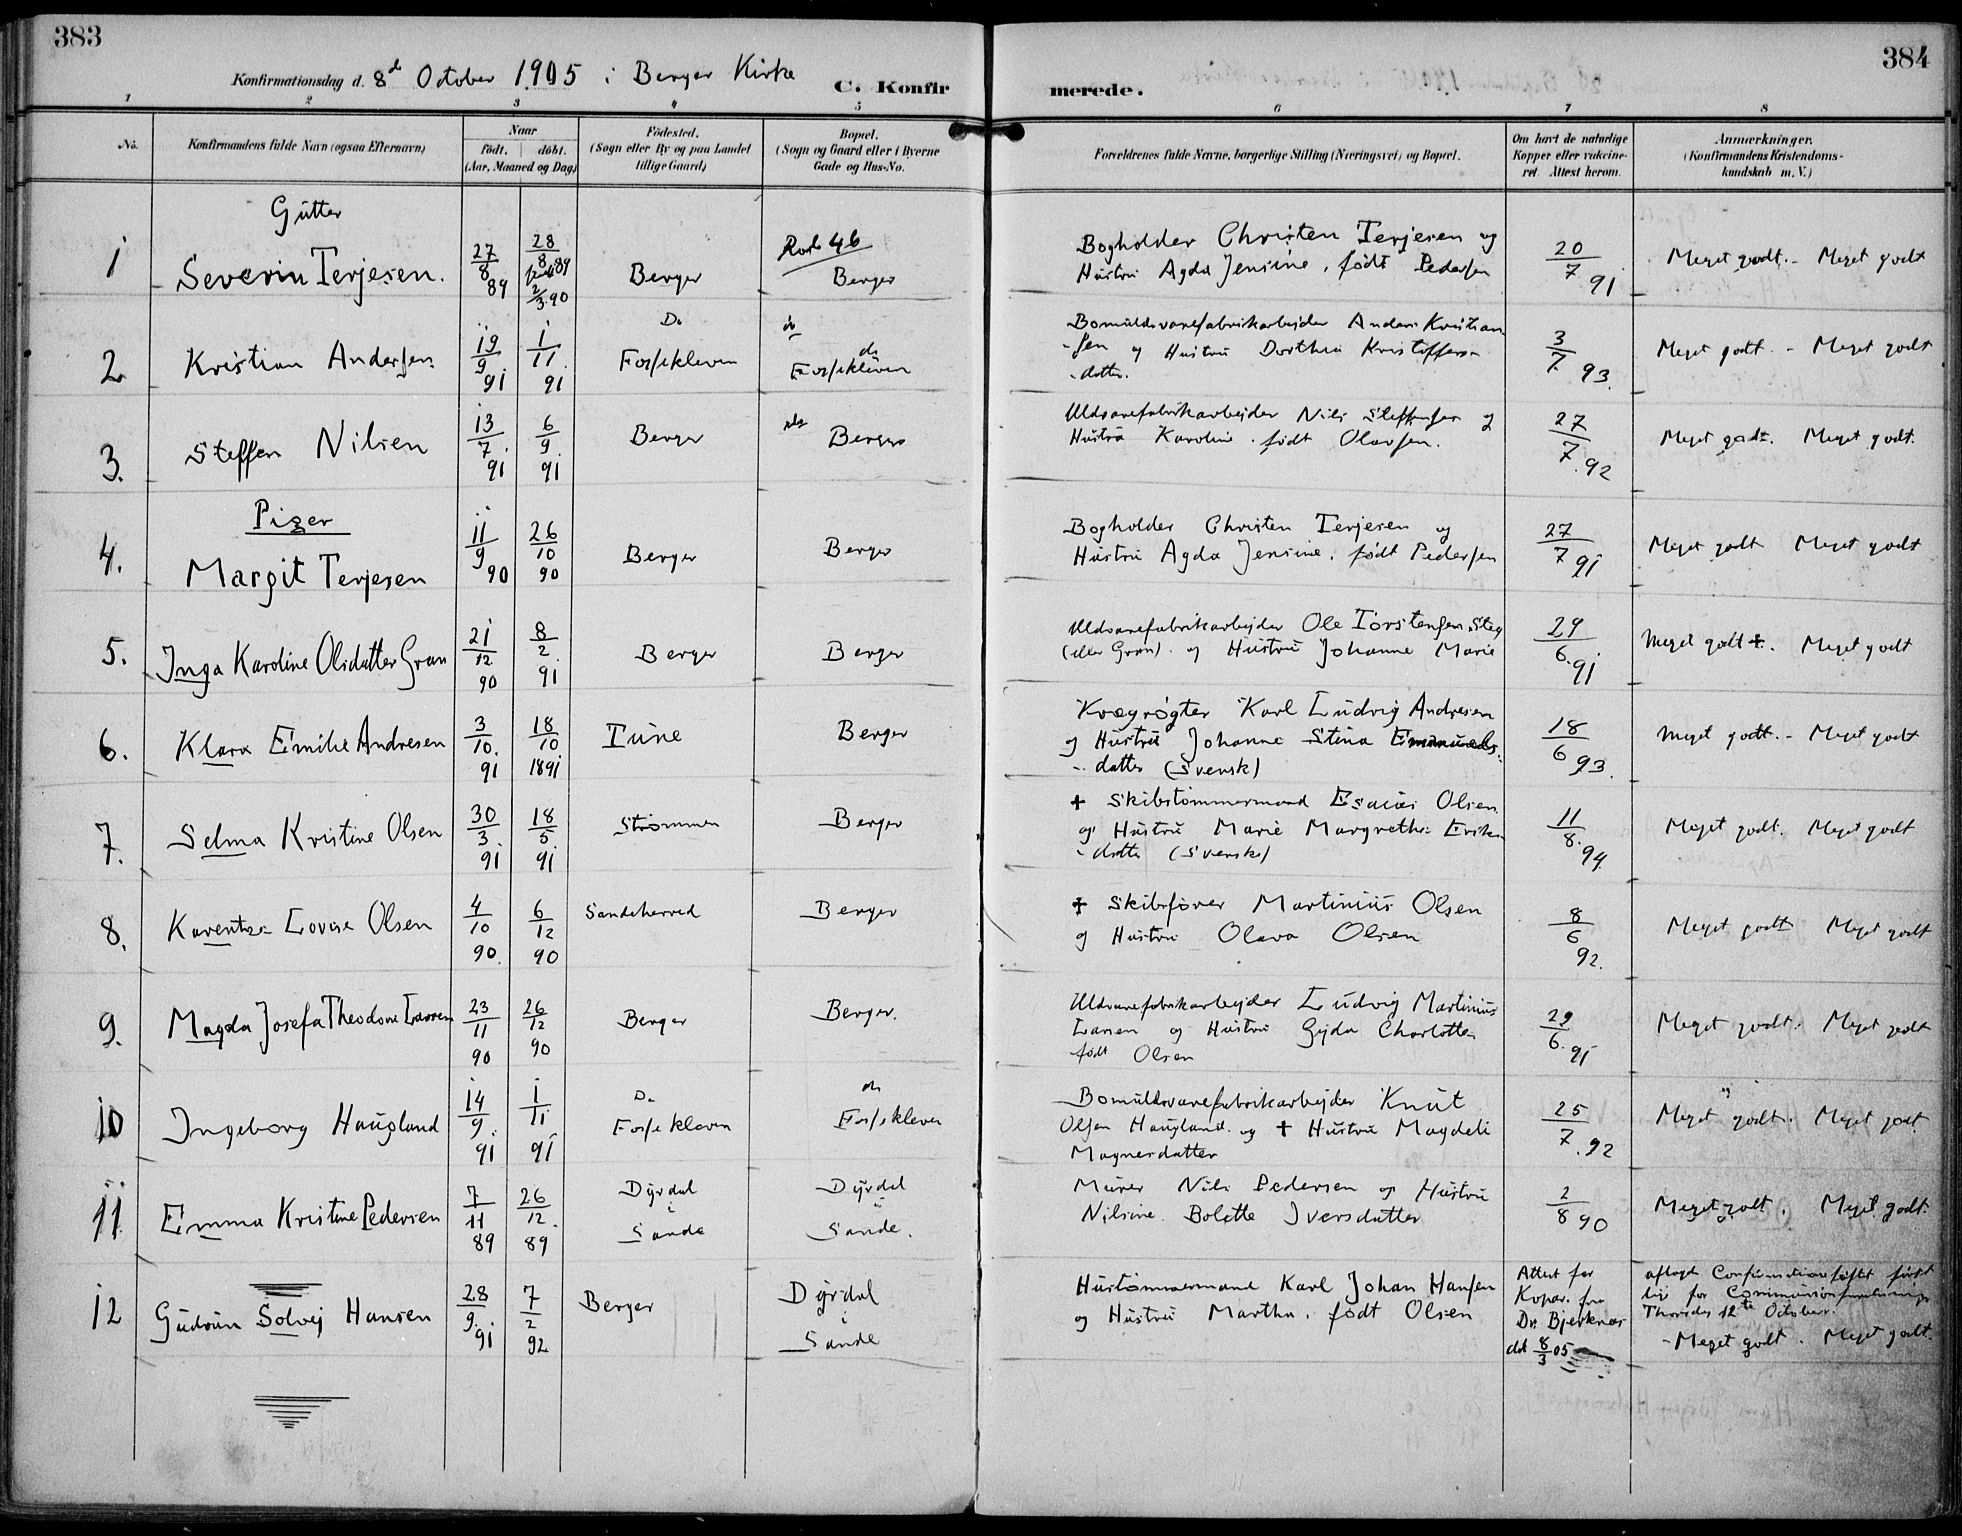 383
384
Konfirmationsdag d. 8d October 1905 i Berger Kirke
C. Konfirmerede.
1 2 3 4 5 6 7 8
No.
Konfirmandens fulde Navn (ogsaa Efternavn)
Naar
født. døbt.
(Aar, Maaned og Dag)
Fødested.
(Sogn eller By og paa Landet
tillige Gaard)
Bopæl.
(Sogn og Gaard eller i Byerne
Gade og Hus-No.
Forældrenes fulde Navne, borgerlige Stilling (Næringsvei) og Bopæl.
Om havt de naturlige
Kopper eller vakcine-
ret. Attest herom.
Anmærkninger.
(Konfirmandens Kristendoms-
kundskab m. V.)
Gutter
1 Severin Terjesen. 27/8 89 28/8 89 2/3 90 Berger
Rode 46
Berger
Bogholder Christen Terjesen og
Hustru Agda Jensine, født Pedersen
20/7 91 Meget godt. - Meget godt
2 Kristian Andersen 19/9 91 1/11 91
Do
Fossekleven
do
do
Fossekleven
Bomuldsvarefabrikarbejder Anders Kristian
-sen og Hustru Dorthea Kristoffers-
-datter.
3/7 93. Meget godt. - Meget godt
3. Steffen Nilsen 13/7 91 6/9 91 Berger Berger
Uldvarefabrikarbejder Nils Steffensen og
Hustru Karoline, født Olavsen.
27/7 92 Meget godt. Meget godt.
Piger
4. Margit Terjesen 11/9 90 26/10 90 Berger Berger
Bogholder Christen Terjesen og
Hustru Agda Jensine, født Pedersen
27/7 91 Meget godt Meget godt
5. Inga Karoline Olsdatter Gran 21/12 90 8/2 91 Berger Berger
Uldvarefabrikarbejder Ole Torstensen Steg
(eller Gran). og Hustru Johanne Marie
29/6 91 Meget godt +. Meget godt
6. Klara Emilie Andresen 3/10 91 18/10 1891 Tune Berger
Kvægrøgter Karl Ludvig Andresen
og Hustru Johanne Stina Emanuels-
-datter (svensk)
18/6 93. Meget godt. - Meget godt
7. Selma Kristine Olsen 30/3 91 18/5 91 Strømmen Berger
+ Skibstømmermand Esaias Olsen
og Hustru Marie Margrethe Eriks-
-datter (svensk)
11/8 94 Meget godt. Meget godt
8. Karentze Lovise Olsen 4/10 90. 6/12 90 Sandeherred Berger
+ Skibsfører Martinius Olsen
og Hustru Olava Olsen
8/6 92. Meget godt Meget godt
9. Magda Josefa Theodora Larsen 23/11 90 26/12 90 Berger Berger.
Uldvarefabrikarbejder Ludvig Martinius
Larsen og Hustru Gyda Charlotte
født Olsen
29/6 91 Meget godt. Meget godt
10 Ingeborg Haugland 14/9 91 1/11 91
Do
Fossekleven
do
Fossekleven
Bomuldsvarefabrikarbejder Knut
Olsen Haugland. og + Hustru Magdeli
Magnesdatter
25/7 92 Meget godt. Meget godt
11. Emma Kristine Pedersen 7/11 89 26/12 89
Dyrdal
i
Sande
Dyrdal
i
Sande.
Murer Nils Pedersen og Hustru
Nilsine Bolette Iversdatter
2/8 90 Meget godt. Meget godt.
12 Gudrun Solvej Hansen 28/9 91 7/2 92 Berger
Dyrdal
i
Sande
Hustømmermand Karl Johan Hansen
og Hustru Martha, født Olsen
Attest for
Kopar. fra
Dr. Bjerknæs
dat 8/3 05
aflagde Confirmationsløftet først
Thorsdag 12te October.
- Meget godt. Meget godt.